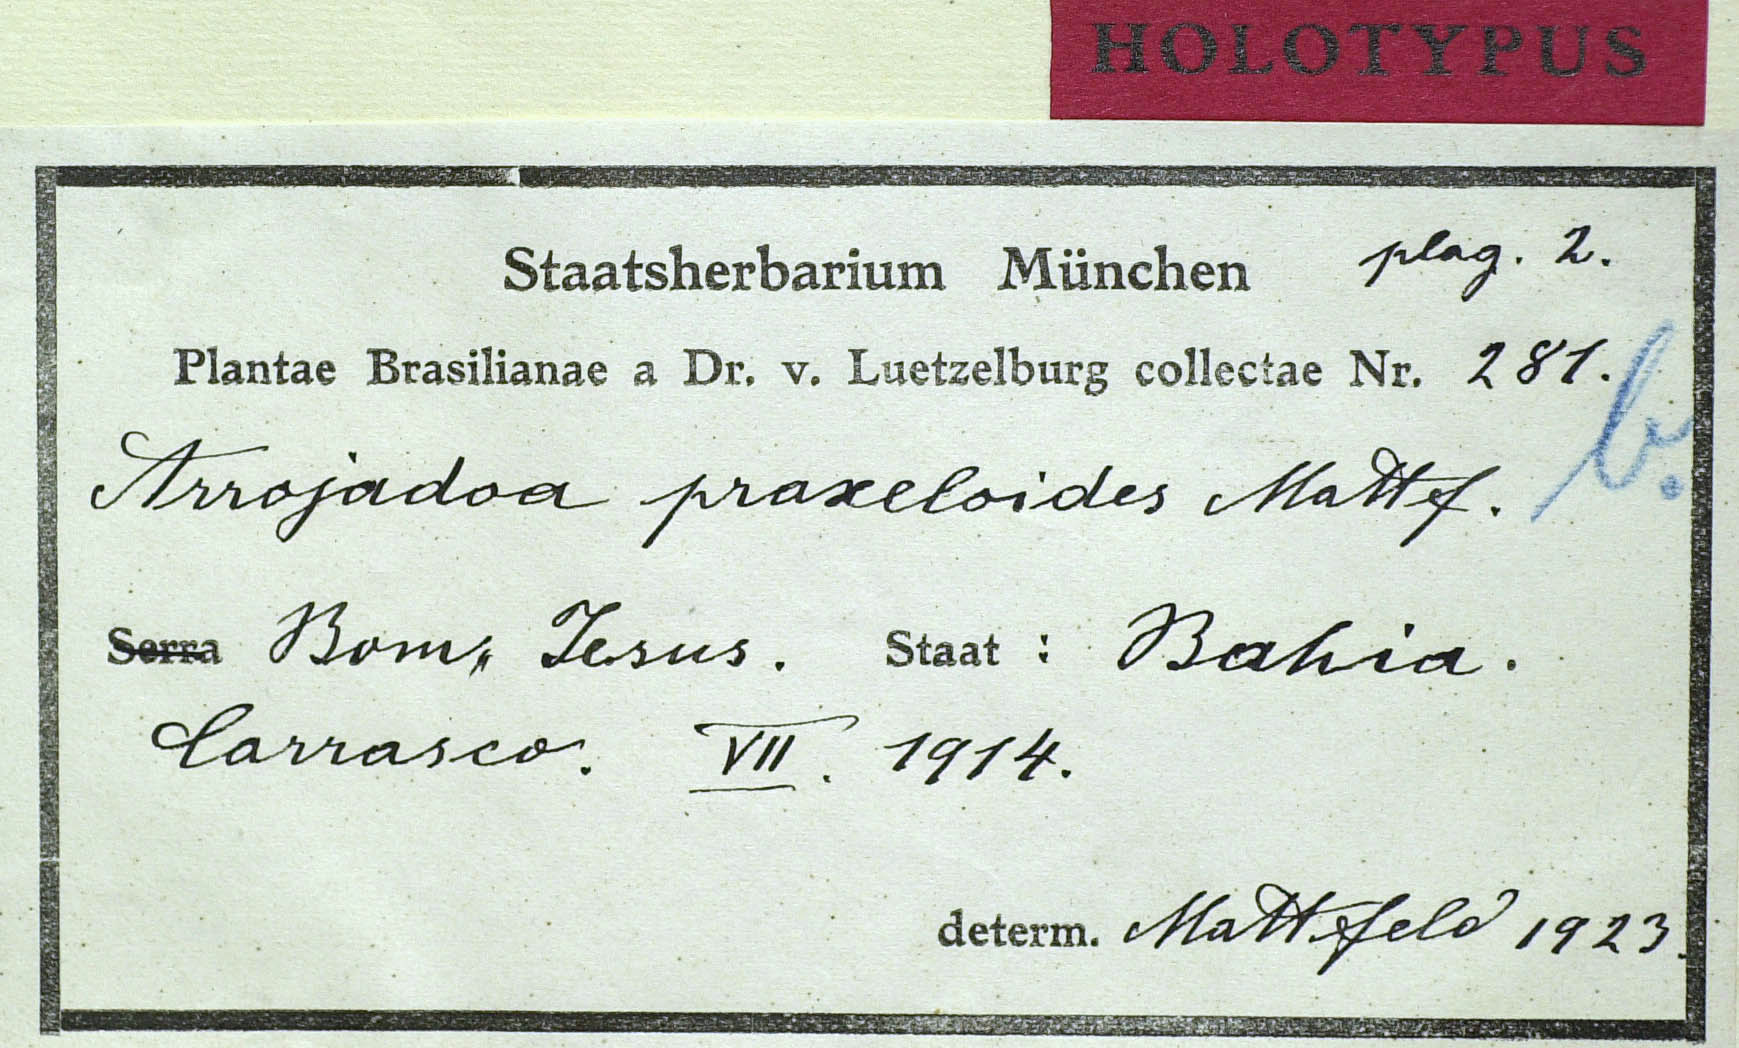 HOLOTYPUS
Staatsherbarium München plag. 2.
Plantae Brasilianae a Dr. v. Luetzelburg collectae Nr. 281. b.
Arrojadoa praxeloides Mattf.
Serra Bom, Jesus. Staat : Bahia.
Carrasco. VII. 1914.
determ. Mattfeld 1923.